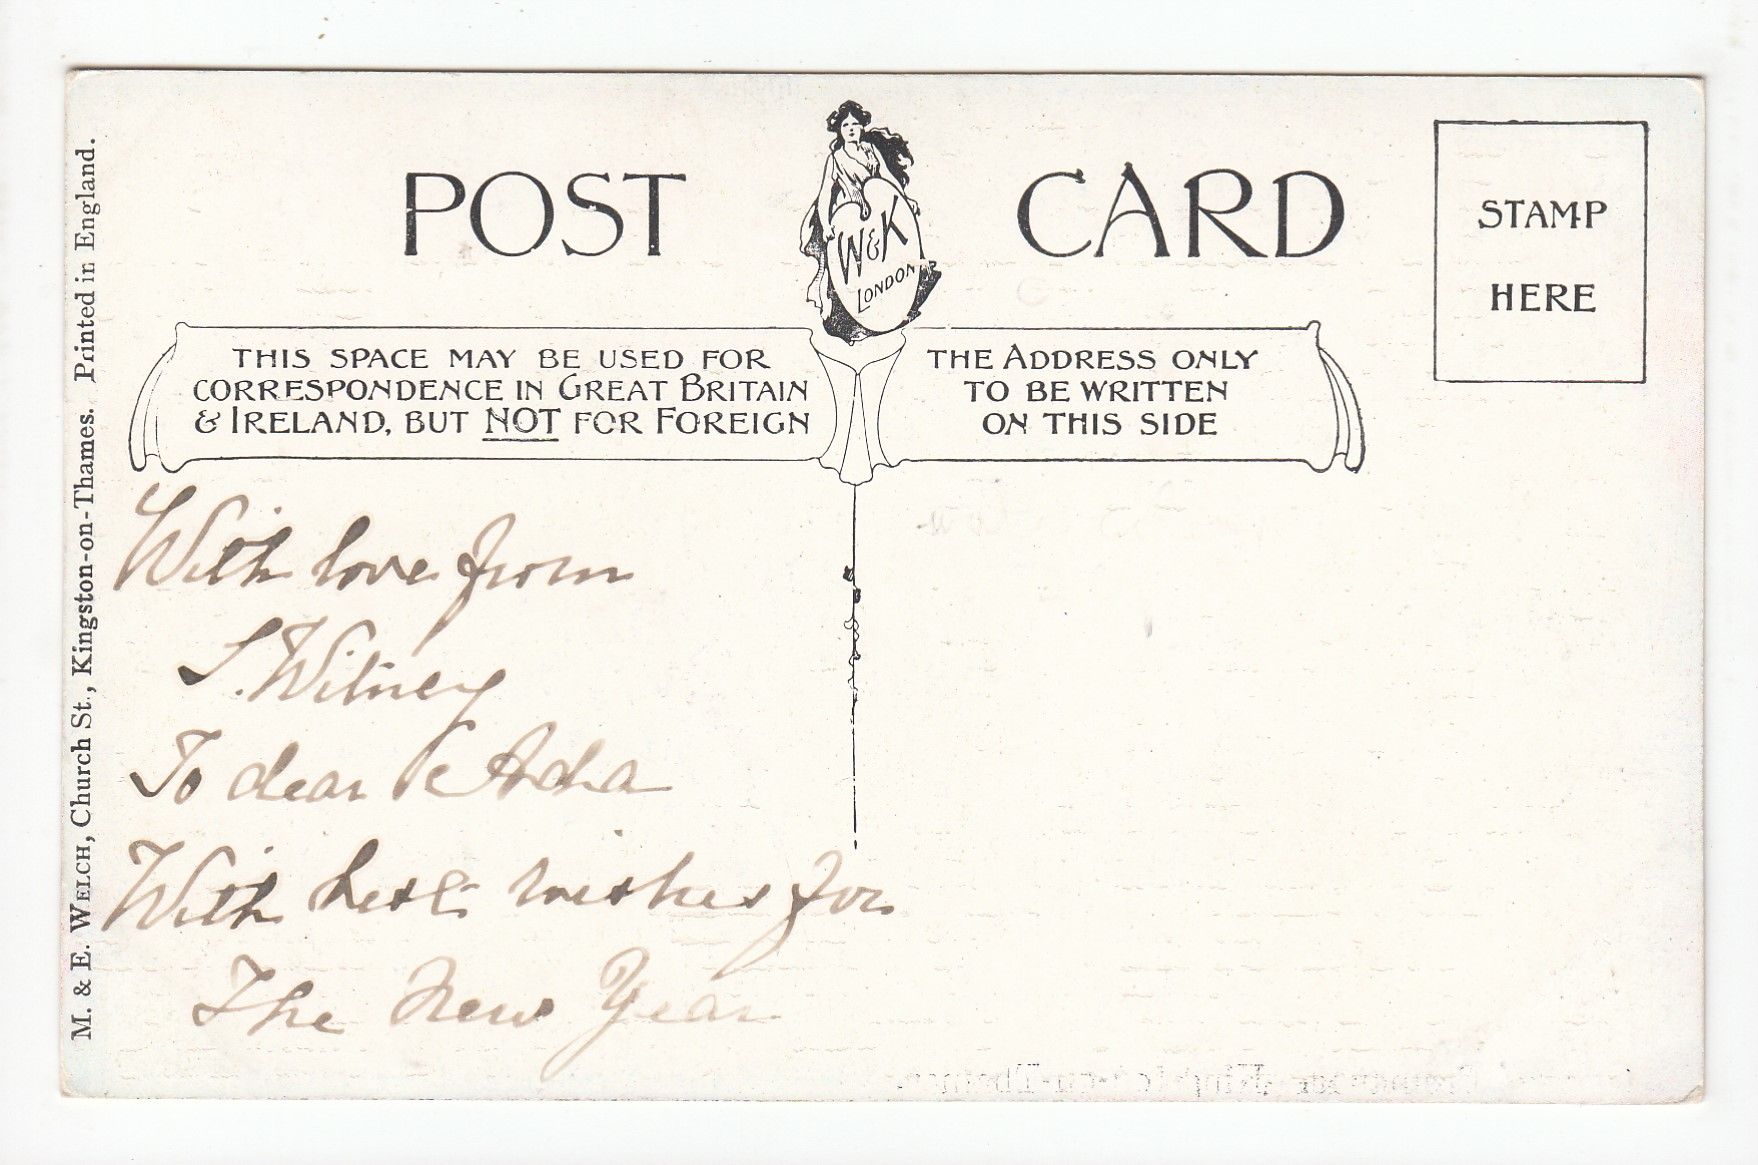 POST CARD
W & K
LONDON
STAMP
HERE
THIS SPACE MAY BE USED FOR
CORRESPONDENCE IN GREAT BRITAIN
& IRELAND, BUT NOT FOR FOREIGN
THE ADDRESS ONLY
TO BE WRITTEN
ON THIS SIDE
M. & E. WELCH, Church St., Kingston-on-Thames. Printed in England.
With love from
S. Witney
To dear Ada
With best wishes for
The New Year